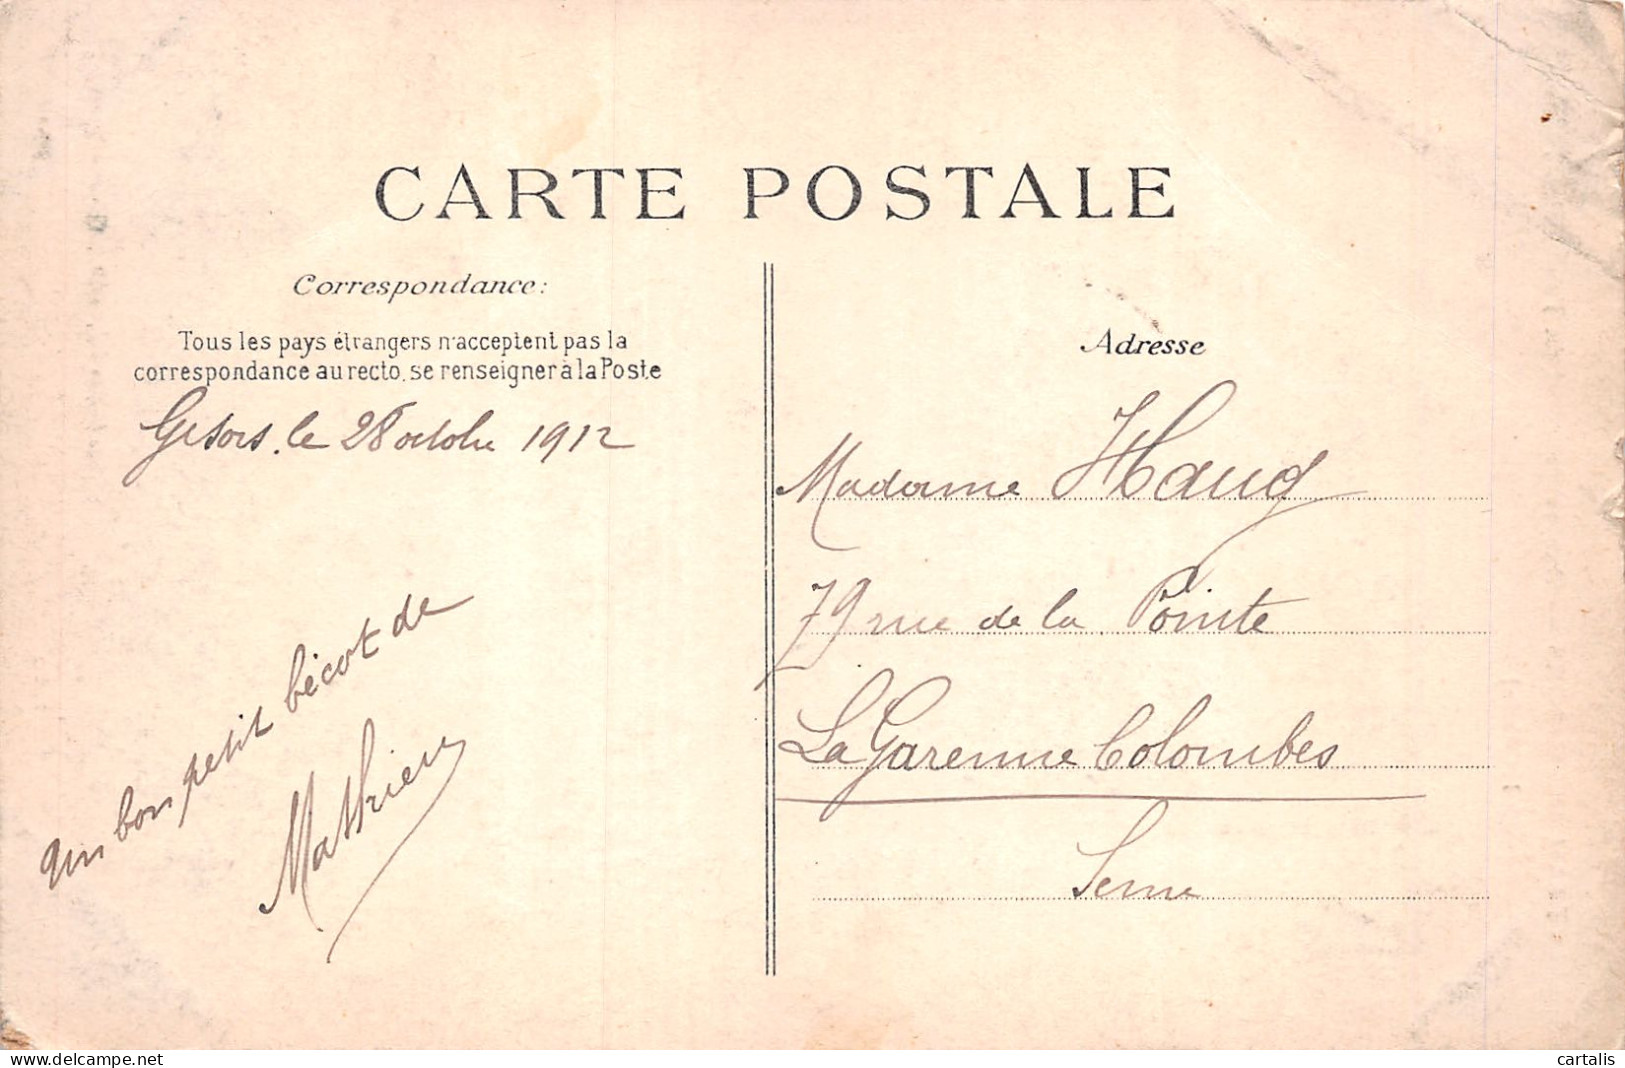 CARTE POSTALE
Correspondance:
Tous les pays étrangers n'acceptent pas la
correspondance au recto, se renseigner à la Poste
Gisors, le 28 octobre 1912
Un bon petit bécot de
Mathieu
Adresse
Madame Haug
79 rue de la Pointe
La Garenne Colombes
Seine
delcampe.net
cartalis